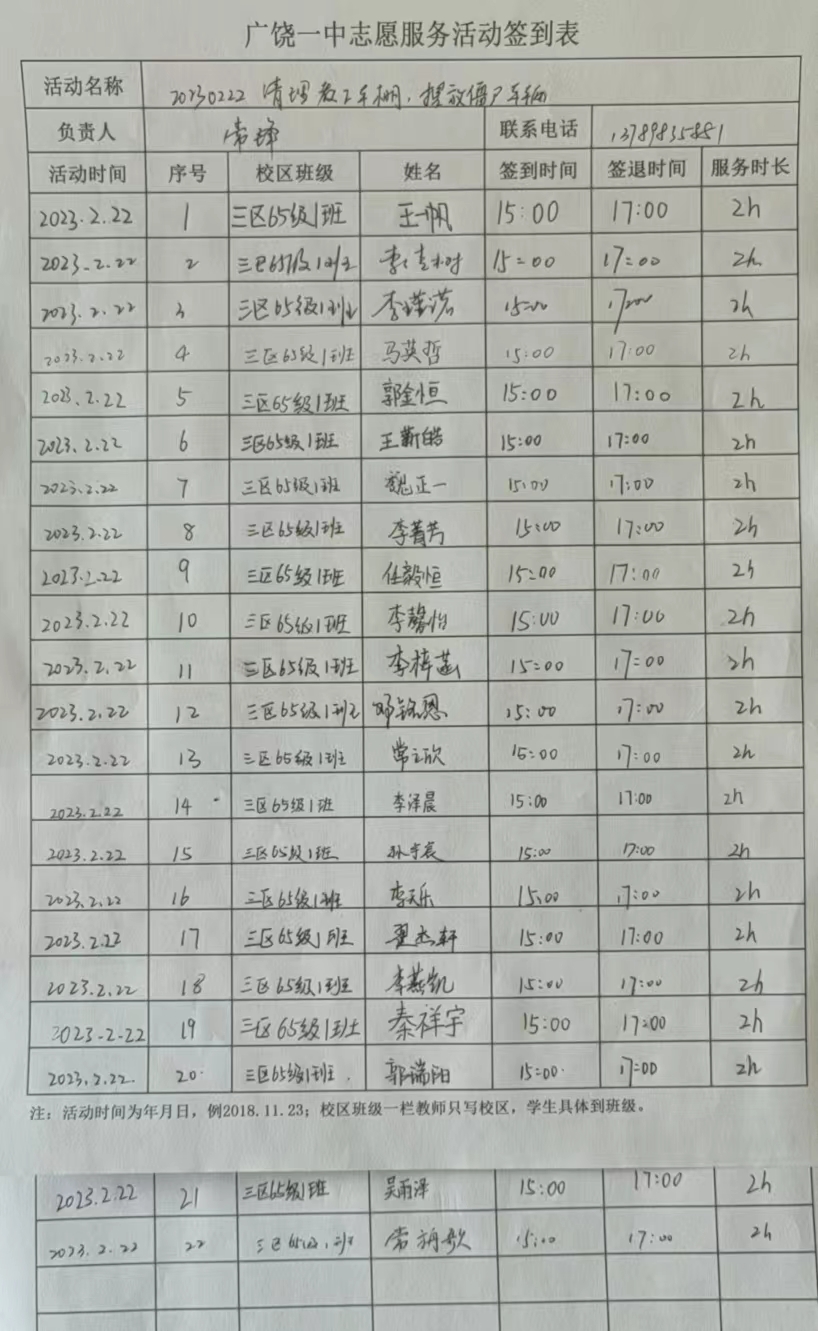 广饶一中志愿服务活动签到表
活动名称 20230222 清理教工车棚，摆放僵尸车辆
负责人 常峰 联系电话 13789835881
活动时间 序号 校区班级 姓名 签到时间 签退时间 服务时长
2023.2.22 1 三区65级1班 王一帆 15:00 17:00 2h
2023.2.22 2 三区65级1班 李佳树 15:00 17:00 2h
2023.2.22 3 三区65级1班 李瑾诺 15:00 17:00 2h
2023.2.22 4 三区65级1班 马英哲 15:00 17:00 2h
2023.2.22 5 三区65级1班 郭金恒 15:00 17:00 2h
2023.2.22 6 三区65级1班 王新皓 15:00 17:00 2h
2023.2.22 7 三区65级1班 魏正一 15:00 17:00 2h
2023.2.22 8 三区65级1班 李菁芳 15:00 17:00 2h
2023.2.22 9 三区65级1班 任毅恒 15:00 17:00 2h
2023.2.22 10 三区65级1班 李馨怡 15:00 17:00 2h
2023.2.22 11 三区65级1班 李梓菡 15:00 17:00 2h
2023.2.22 12 三区65级1班 邓铭恩 15:00 17:00 2h
2023.2.22 13 三区65级1班 常立欣 15:00 17:00 2h
2023.2.22 14 三区65级1班 李泽晨 15:00 17:00 2h
2023.2.22 15 三区65级1班 孙宇宸 15:00 17:00 2h
2023.2.22 16 三区65级1班 李天乐 15:00 17:00 2h
2023.2.22 17 三区65级1班 翟杰轩 15:00 17:00 2h
2023.2.22 18 三区65级1班 李燕凯 15:00 17:00 2h
2023.2.22 19 三区65级1班 秦祥宇 15:00 17:00 2h
2023.2.22 20 三区65级1班 郭瑞阳 15:00 17:00 2h
注：活动时间为年月日，例2018.11.23；校区班级一栏教师只写校区，学生具体到班级。
2023.2.22 21 三区65级1班 吴雨泽 15:00 17:00 2h
2023.2.22 22 三区65级1班 常 歌 15:00 17:00 2h